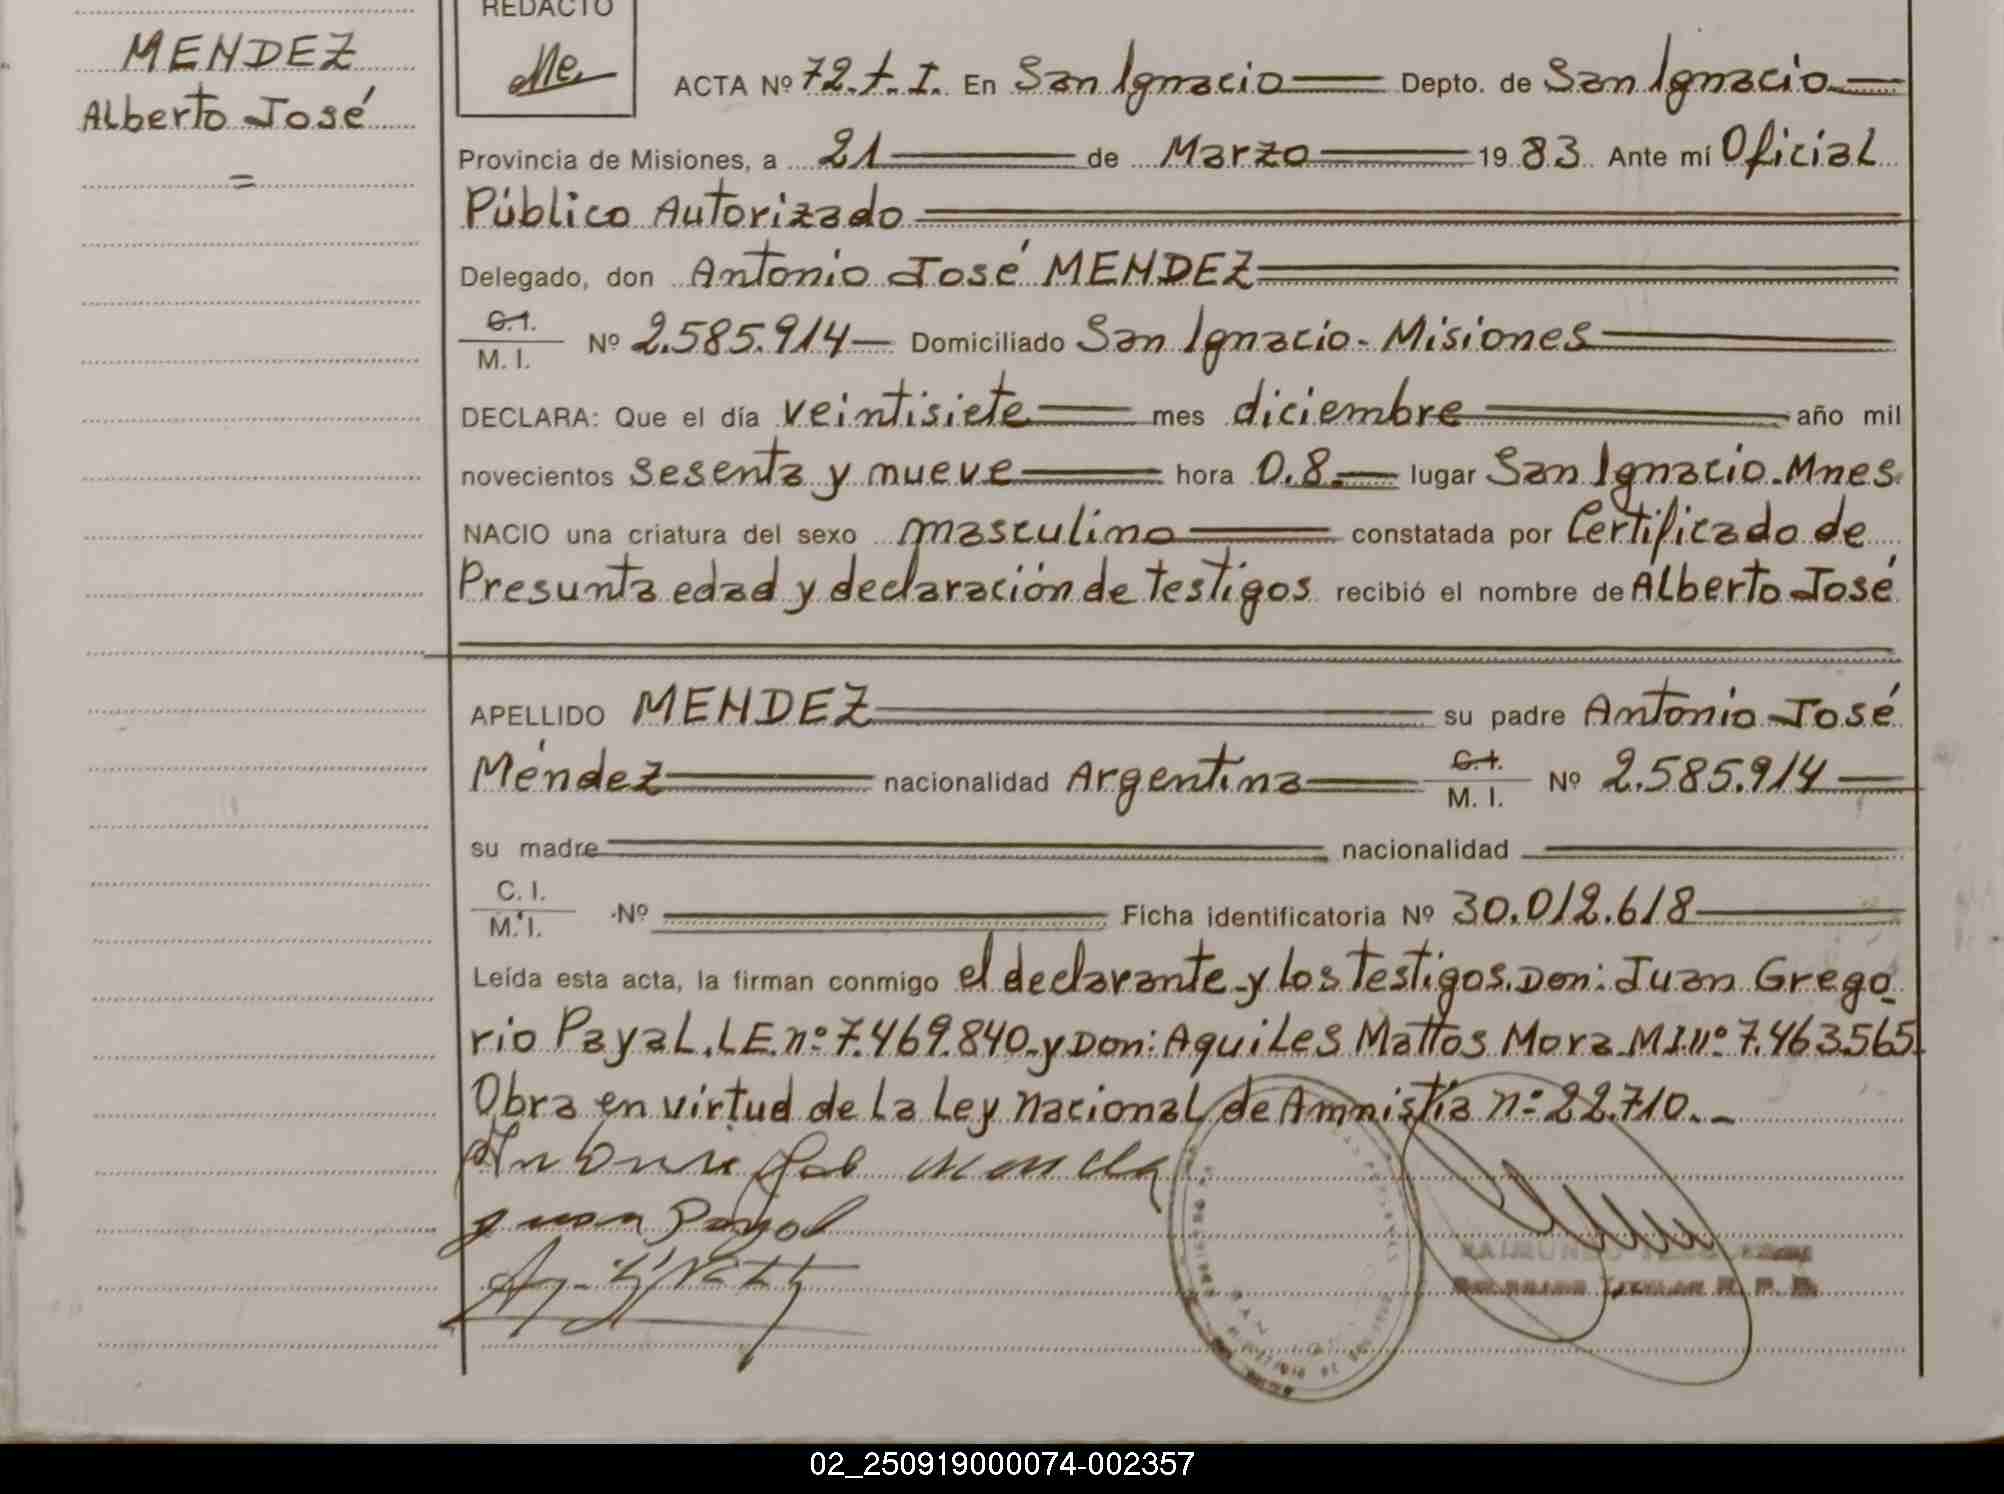 REDACTO
MENDEZ
Alberto José
=
ACTA Nº 72.t.I. En San Ignacio Depto. de San Ignacio
Provincia de Misiones, a 21 de Marzo 1983. Ante mí Oficial
Público Autorizado
Delegado, don Antonio José MENDEZ
C.I.
M. I. Nº 2.585.914 Domiciliado San Ignacio - Misiones
DECLARA: Que el día veintisiete mes diciembre año mil
novecientos sesenta y nueve hora 0.8. lugar San Ignacio.Mnes.
NACIO una criatura del sexo masculino constatada por Certificado de
Presunta edad y declaración de testigos recibió el nombre de Alberto José
APELLIDO MENDEZ su padre Antonio José
Méndez nacionalidad Argentina C.I.
M. I. Nº 2.585.914
su madre nacionalidad
C. I.
M. I. Nº Ficha identificatoria Nº 30.012.618
Leída esta acta, la firman conmigo el declarante y los testigos. Don: Juan Grego
rio Payal. LE. nº 7.469.840. y Don: Aquiles Mattos Mora. M.I. nº 7.463.565.
Obra en virtud de la Ley nacional de Amnistía nº 22.710.-
Antonio José Mendez
Juan Payal
R. P. P.
02_250919000074-002357